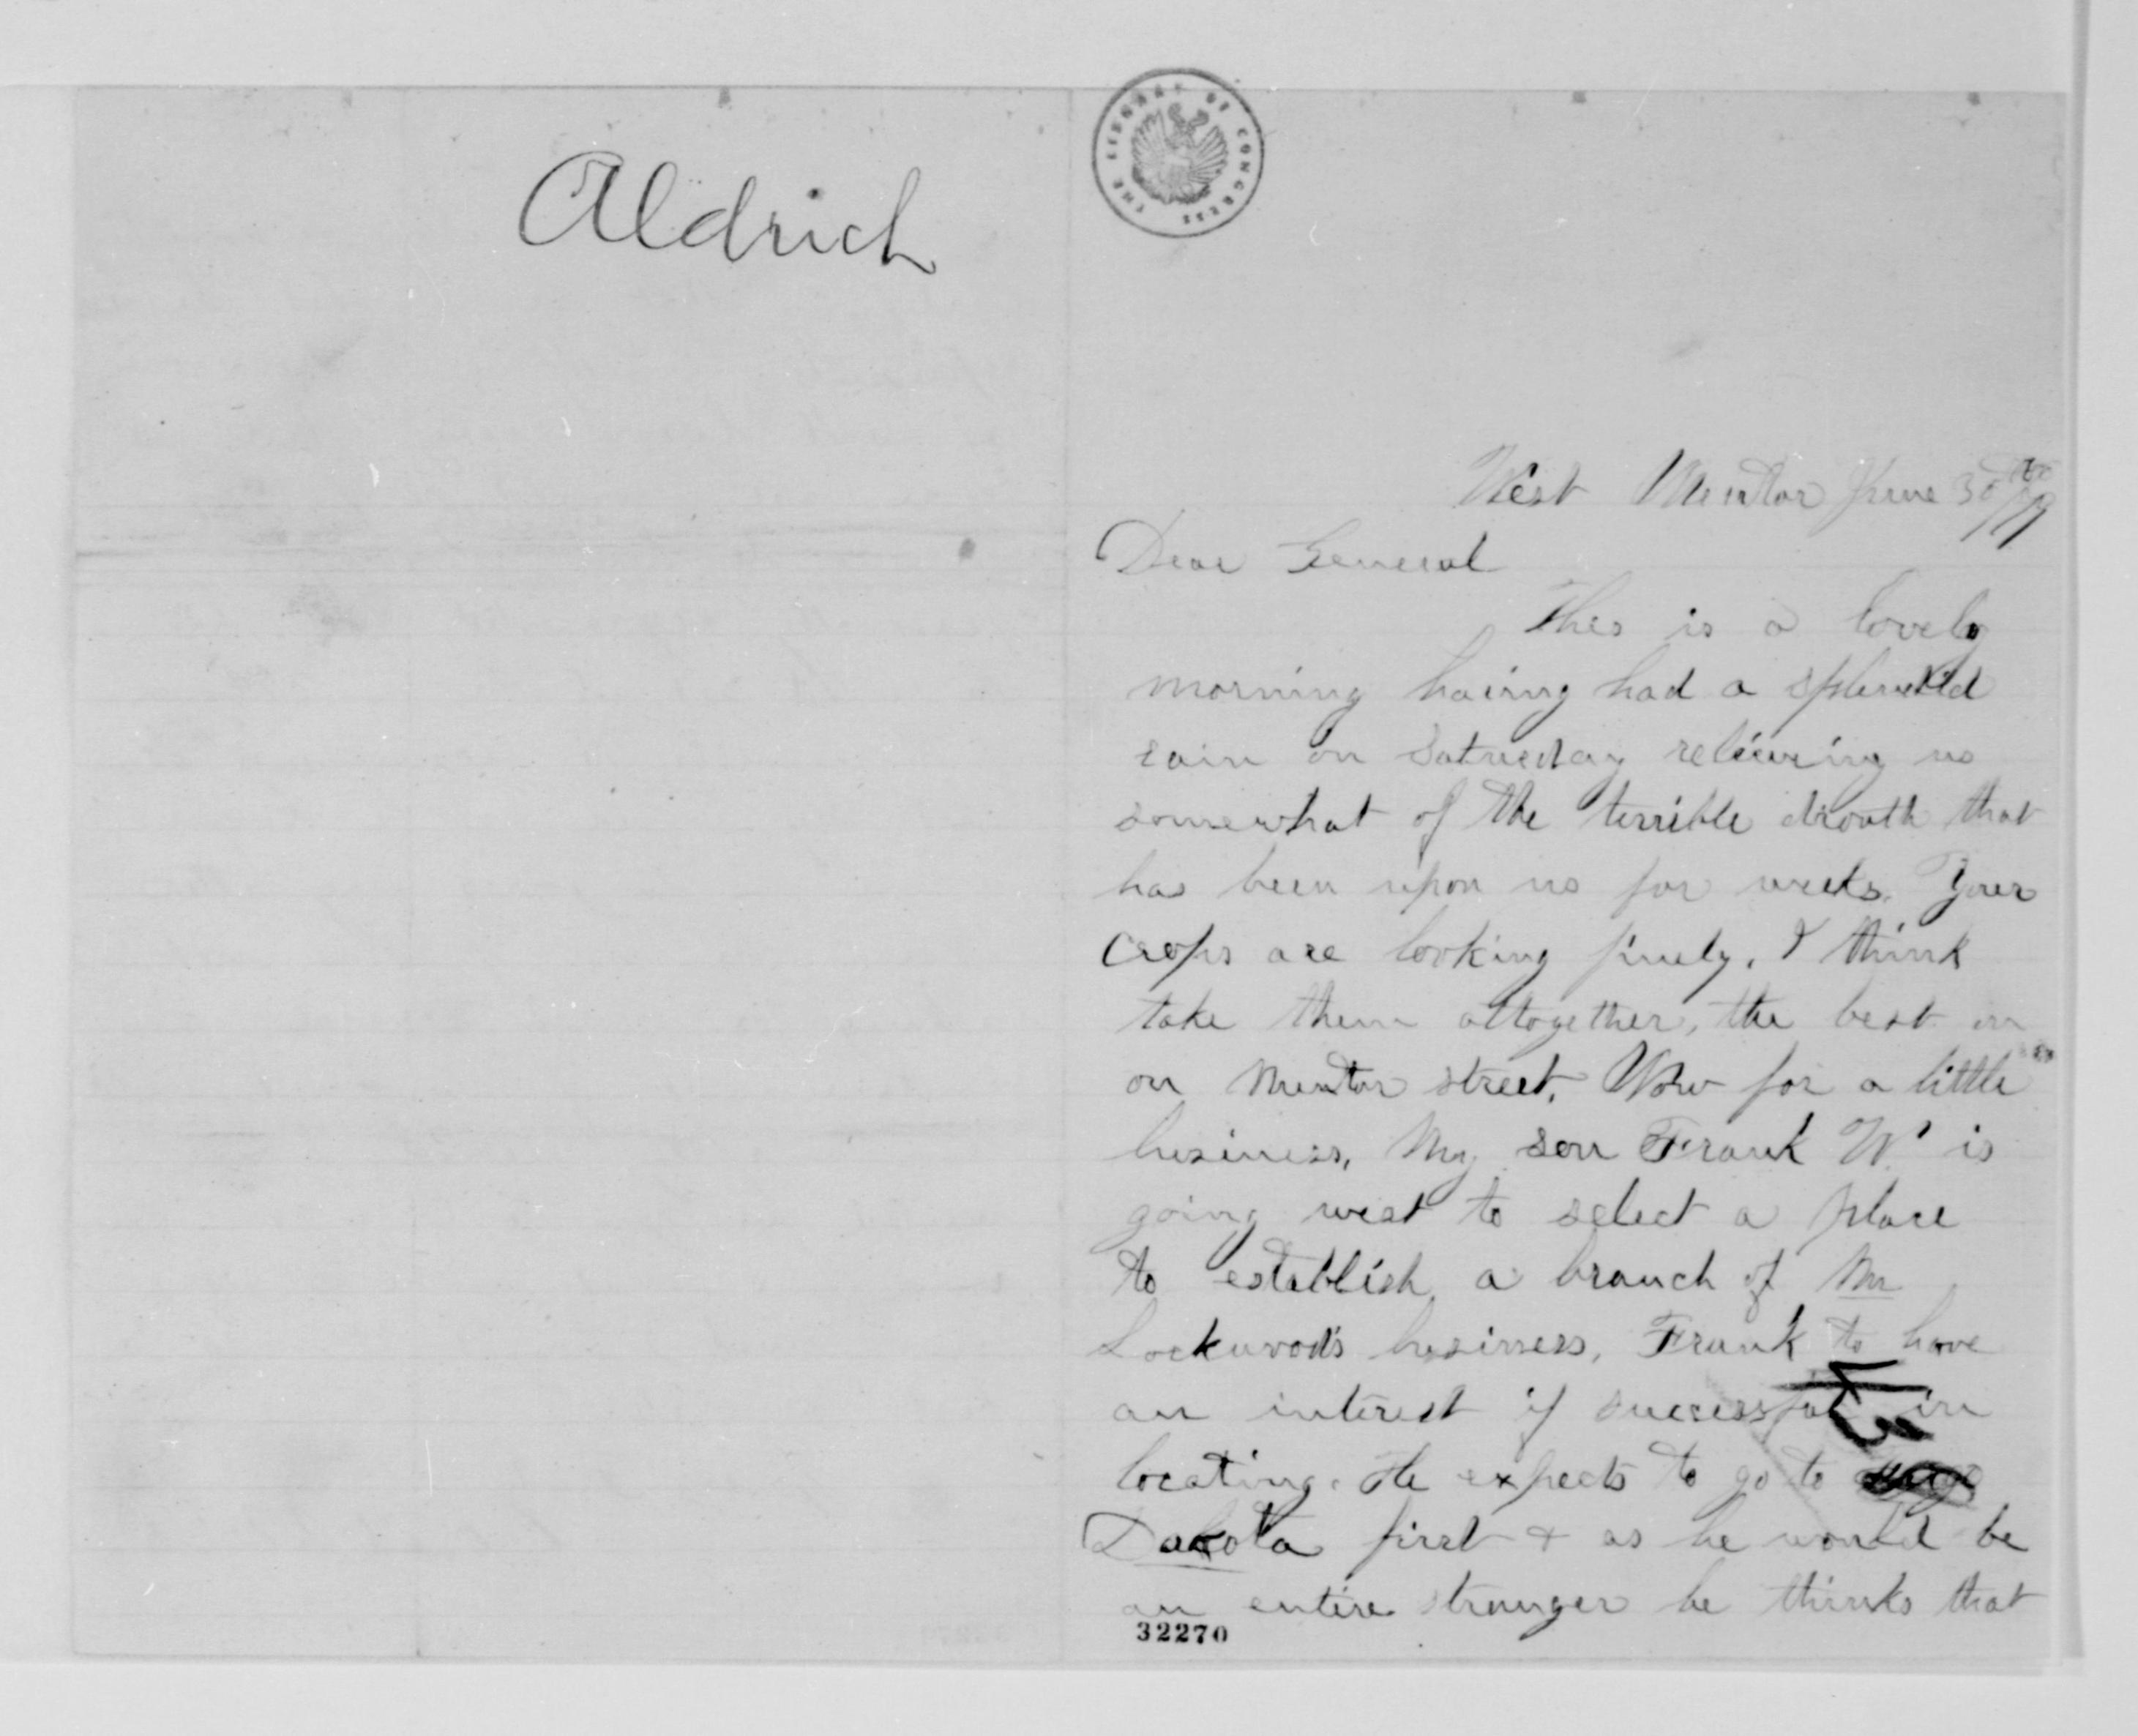 Aldrich
THE LIBRARY OF CONGRESS
West Mentor June 30th/79
Dear General
This is a lovely
morning haing had a splendid
rain on Saturday relieving us
somewhat of the terrible drouth that
has been upon us for weeks. Your
Crops are looking finely, I think
take them altogether, the best on
on Mentor street. Now for a little
business, My son Frank W. is
going west to select a place
to establish a branch of Mr
Lockwood's business, Frank to have
an interest if successful in
locating. He expects to go to
Dakota first & as he would be
an entire stranger he thinks that
32270